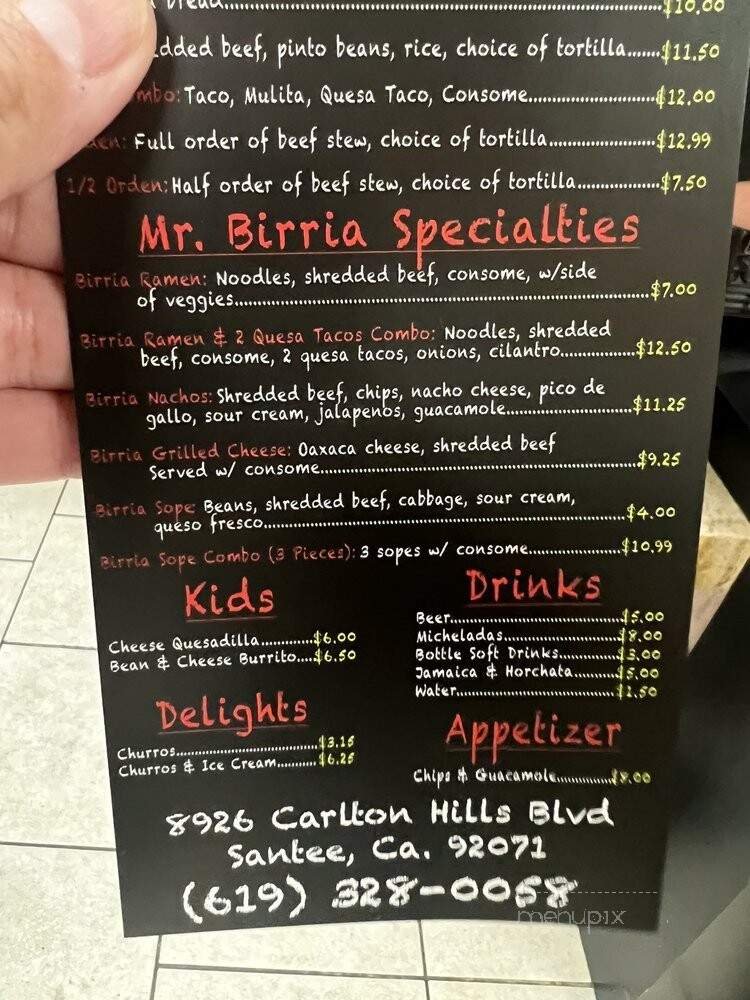 Bread........$10.00
beef, pinto beans, rice, choice of tortilla.......$11.50
Taco, Mulita, Quesa Taco, Consome........$12.00
Full order of beef stew, choice of tortilla........$12.99
1/2 Orden: Half order of beef stew, choice of tortilla........$7.50
Mr. Birria Specialties
Birria Ramen: Noodles, shredded beef, consome, w/side
of veggies........$7.00
Birria Ramen & 2 Quesa Tacos Combo: Noodles, shredded
beef, consome, 2 quesa tacos, onions, cilantro........$12.50
Birria Nachos: Shredded beef, chips, nacho cheese, pico de
gallo, sour cream, jalapenos, guacamole........$11.25
Birria Grilled Cheese: Oaxaca cheese, shredded beef
Served w/ consome........$9.25
Birria Sope Beans, shredded beef, cabbage, sour cream,
queso fresco........$4.00
Birria Sope Combo (3 Pieces): 3 sopes w/ consome........$10.99
Kids
Cheese Quesadilla........$6.00
Bean & Cheese Burrito....$6.50
Drinks
Beer........$5.00
Micheladas........$8.00
Bottle Soft Drinks........$3.00
Jamaica & Horchata........$5.00
Water........$1.50
Delights
Churros........$3.15
Churros & Ice Cream........$6.25
Appetizer
Chips & Guacamole........$8.00
8926 Carlton Hills Blvd
Santee, Ca. 92071
(619) 328-0058
menupix